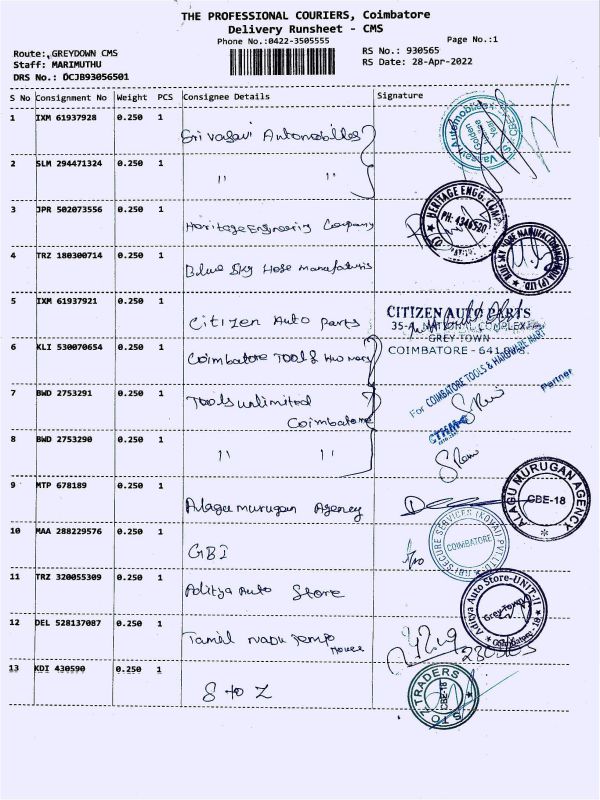 THE PROFESSIONAL COURIERS, Coimbatore
Delivery Runsheet - CMS
Phone No.:0422-3505555
Page No.:1
Route: GREYDOWN CMS
RS No.: 930565
Staff: MARIMUTHU
RS Date: 28-Apr-2022
DRS No.: DCJB93056501
S No Consignment No Weight PCS Consignee Details Signature
1 IXM 61937928 0.250 1 Sri vasavi Automobiles
2 SLM 294471324 0.250 1 " "
3 JPR 502073556 0.250 1 Heritage Engineering Company
HERITAGE ENGG. COMP
PH: 4346520
4 TRZ 180300714 0.250 1 Blue Sky Hose manufacturis
5 IXM 61937921 0.250 1 Citizen Auto parts
CITIZEN AUTO PARTS
35-A, NATIONAL COMPLEX
GREY TOWN
COIMBATORE - 641
6 KLI 530070654 0.250 1 Coimbatore Tools &
For COIMBATORE TOOLS & HARDWARE MART
Partner
7 BWD 2753291 0.250 1 Tools unlimited
Coimbatore
8 BWD 2753290 0.250 1 " "
9 MTP 678189 0.250 1 Alagu murugan Agency
ALAGU MURUGAN AGENCY
CBE-18
10 MAA 288229576 0.250 1 GBI
SECURE SERVICES (KOVAI) PVT LTD
COIMBATORE
11 TRZ 320055309 0.250 1 Aditya Auto Store
Aditya Auto Store-UNIT-II
Grey Town
Coimbatore
12 DEL 528137087 0.250 1 Tamil nadu Tempo
House
13 KDI 430590 0.250 1 S to Z
S TO Z TRADERS
CBE-18